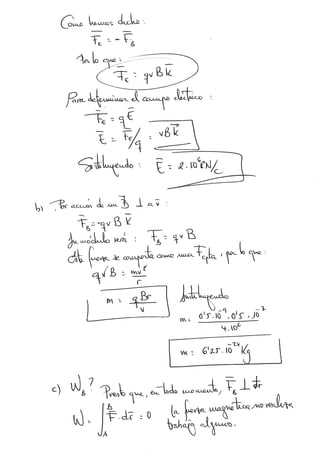 Como hemos dicho:
F̄ₑ = - F̄_B
Por lo que:
F̄ₑ = qvB k̄
Para determinar el campo eléctrico:
F̄ₑ = qĒ
Ē = F̄ₑ/q = vBk̄
Sustituyendo: Ē = 2·10⁶ k̄ N/C
b) Por acción de un B̄ ⊥ a v̄:
F̄_B = -qvB k̄
Su módulo será: F_B = qvB
Esta fuerza se comporta como una F_cpta, por lo que:
qvB = mv²/r
m = qBr/v
Sustituyendo
m = 0'5·10⁻⁹·0'5·10⁻² / 4·10⁶
m = 6'25·10⁻²⁴ Kg
c) W_B? Puesto que, en todo momento, F̄_B ⊥ dr̄
W = ∫_A^B F̄·dr̄ = 0 la fuerza magnética no realiza
trabajo alguno.